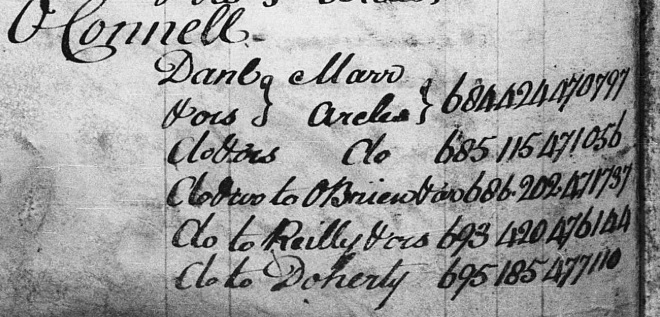 O'Connell
Danl & Marr
& ors } Arcles } 684 424 470797
Do & ors Do 685 115 471056
Do & ors to O'Brien & an 686 202 471737
Do to Reilly & ors 693 420 476144
Do to Doherty 695 185 477110